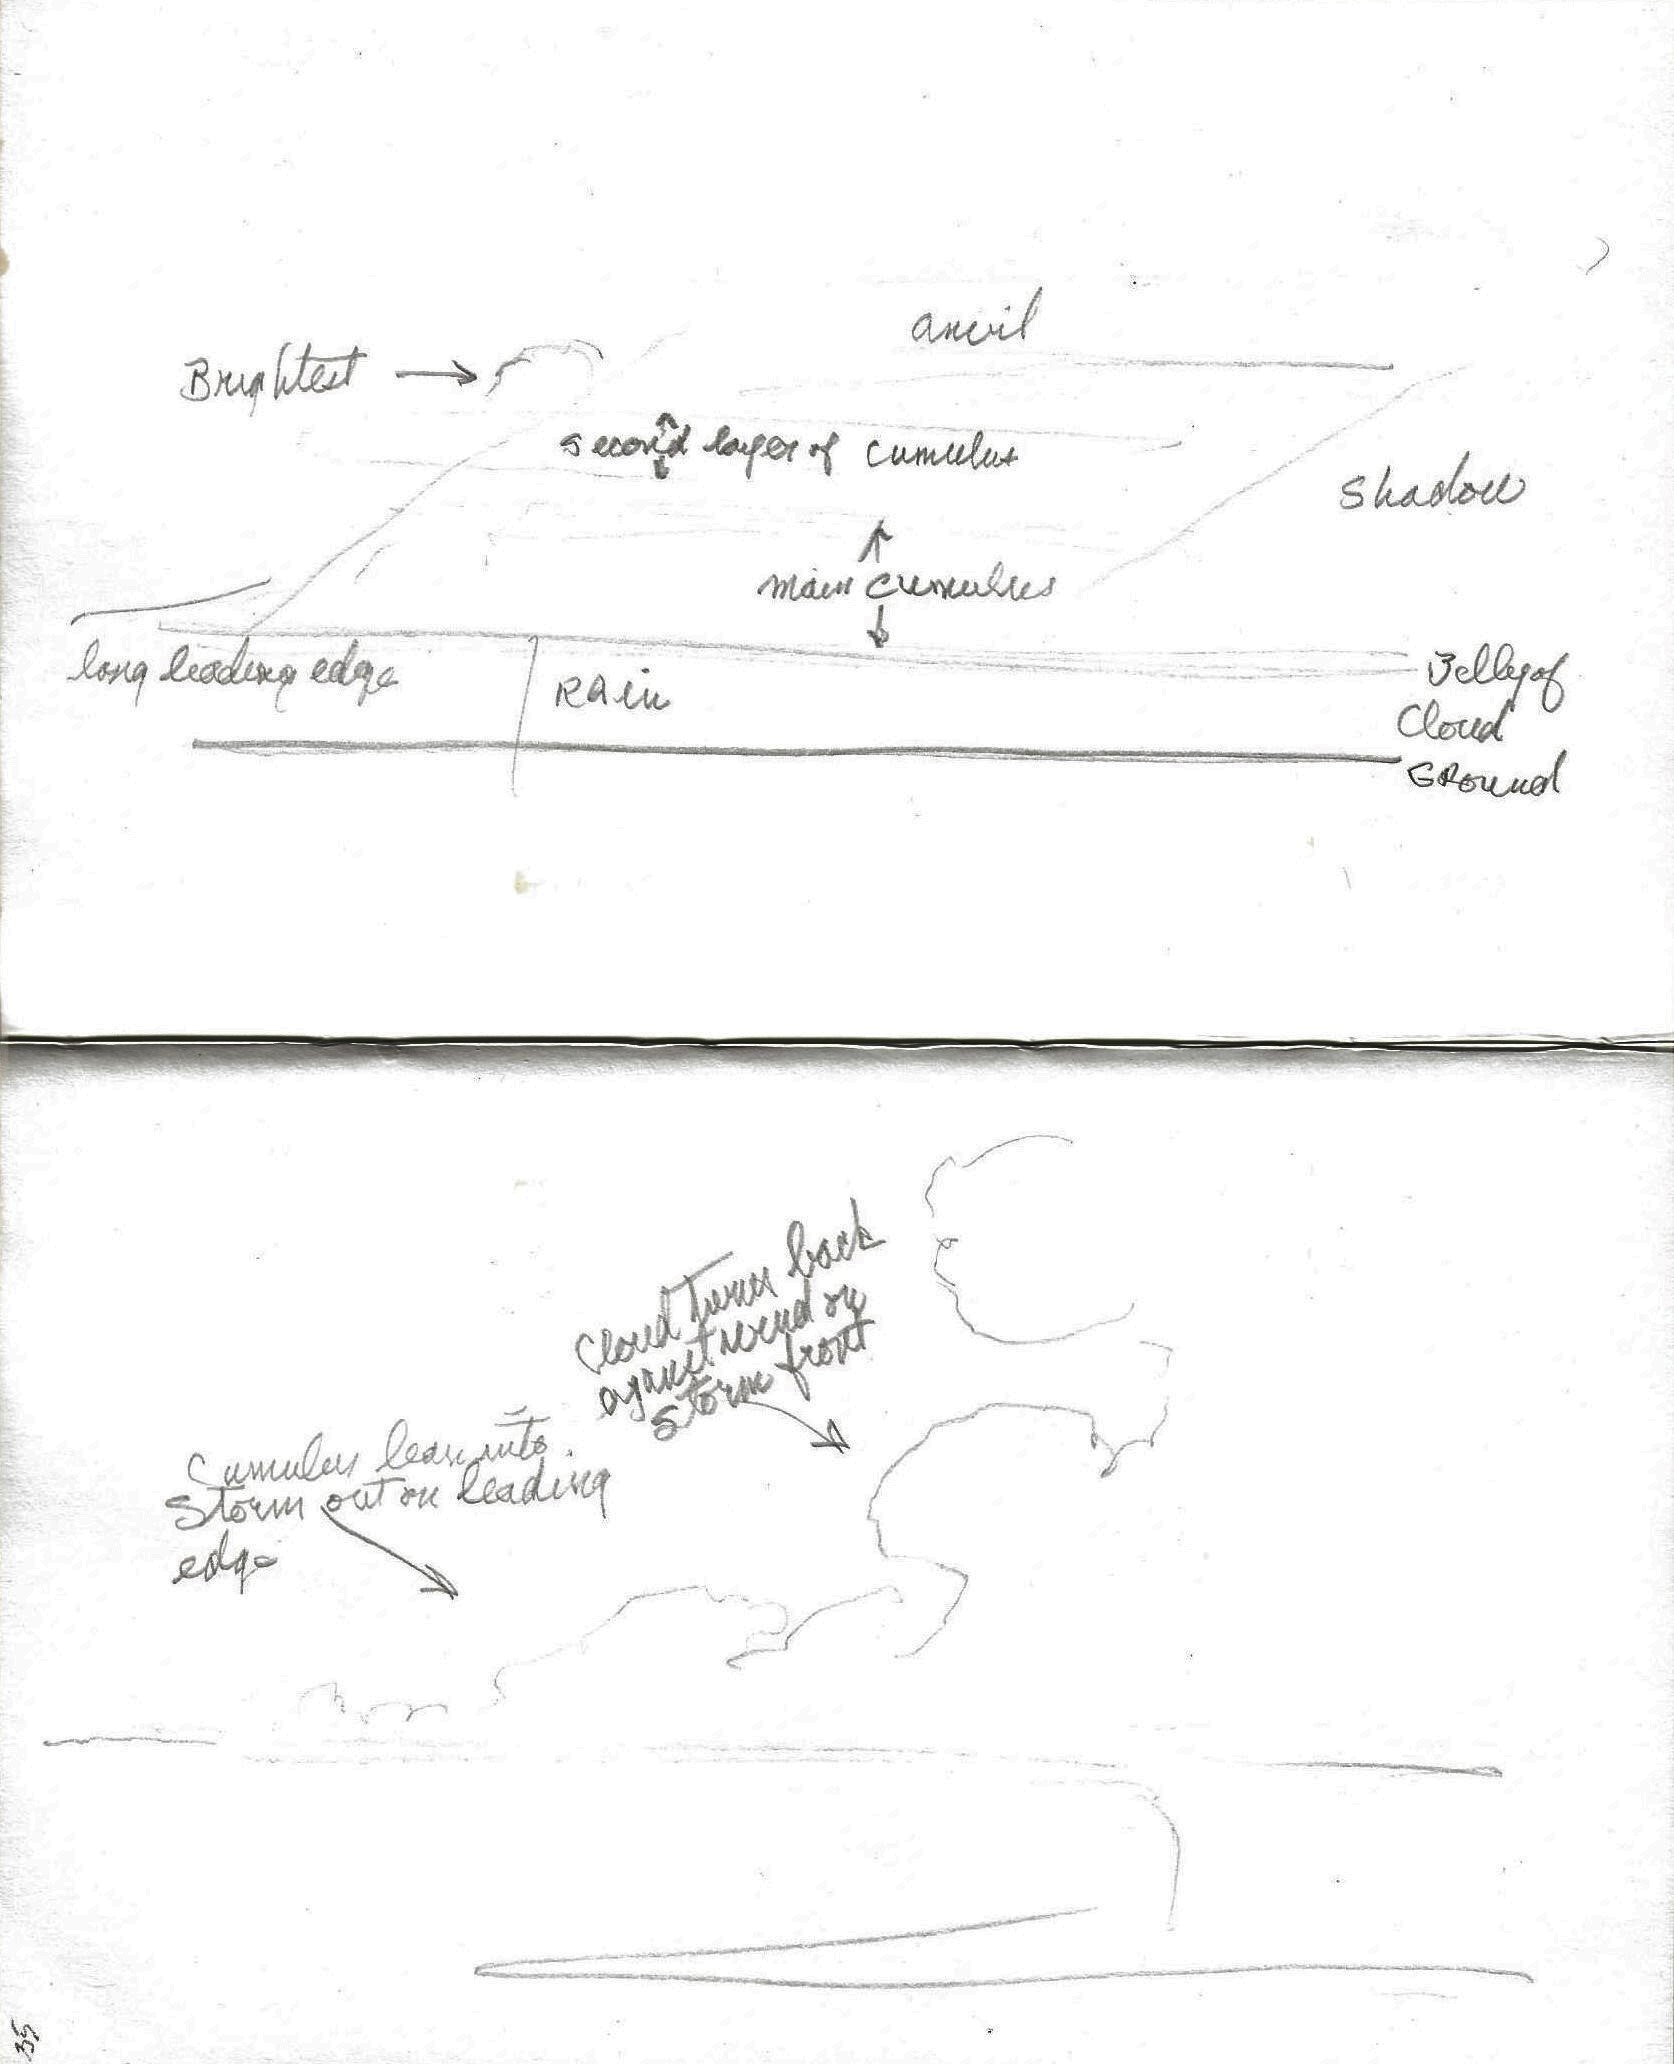 anvil
Brightest
second layer of cumulus
shadow
main cumulus
long leading edge
Rain
Belly of
Cloud
GROUND
Cloud turns back
against wind on
storm front
Cumulus lean into
storm out on leading
edge
35